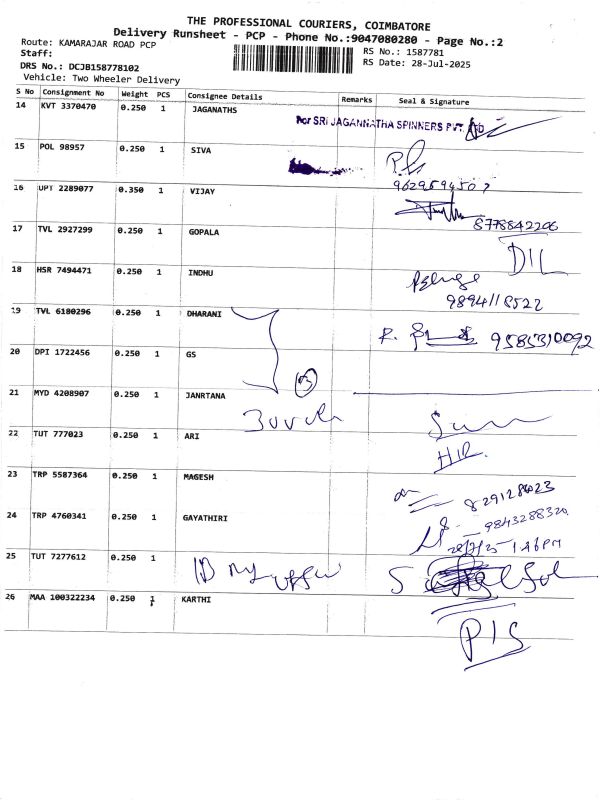 THE PROFESSIONAL COURIERS, COIMBATORE
Delivery Runsheet - PCP - Phone No.:9047080280 - Page No.:2
Route: KAMARAJAR ROAD PCP
RS No.: 1587781
Staff:
RS Date: 28-Jul-2025
DRS No.: DCJB158778102
Vehicle: Two Wheeler Delivery
S No Consignment No Weight PCS Consignee Details Remarks Seal & Signature
14 KVT 3370470 0.250 1 JAGANATHS
For SRI JAGANNATHA SPINNERS PVT. LTD
15 POL 98957 0.250 1 SIVA
16 UPT 2289077 0.350 1 VIJAY
8778842206
17 TVL 2927299 0.250 1 GOPALA
DIL
18 HSR 7494471 0.250 1 INDHU
9894118522
19 TVL 6180296 0.250 1 DHARANI
9585310092
20 DPI 1722456 0.250 1 GS
21 MYD 4208907 0.250 1 JANRTANA
22 TUT 777023 0.250 1 ARI
23 TRP 5587364 0.250 1 MAGESH
24 TRP 4760341 0.250 1 GAYATHIRI
9843288320
28/7/25 1:46PM
25 TUT 7277612 0.250 1
26 MAA 100322234 0.250 1 KARTHI